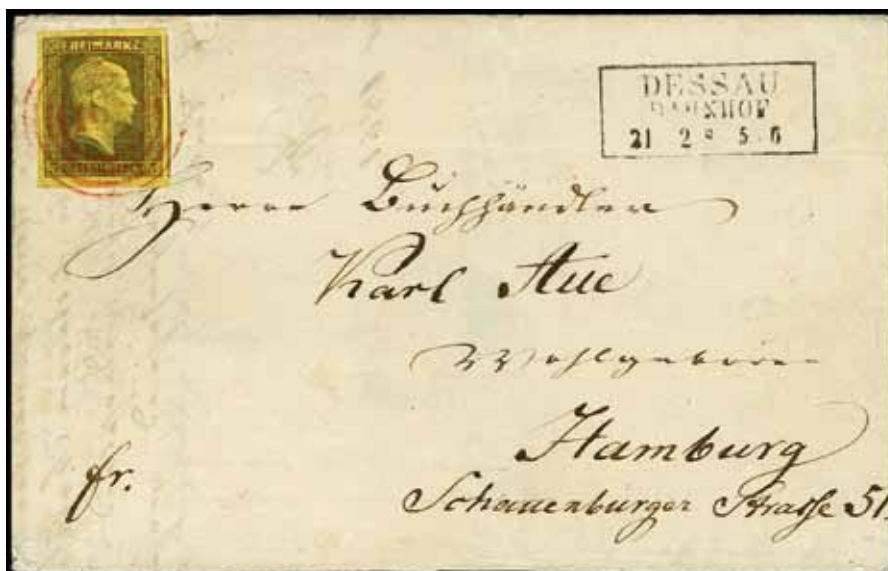 FREIMARKE
DESSAU
BAHNHOF
21 2 * 5-6
Herrn Buchhändler
Karl Aue
Wohlgeboren
Hamburg
fr.
Schauenburger Straße 51.